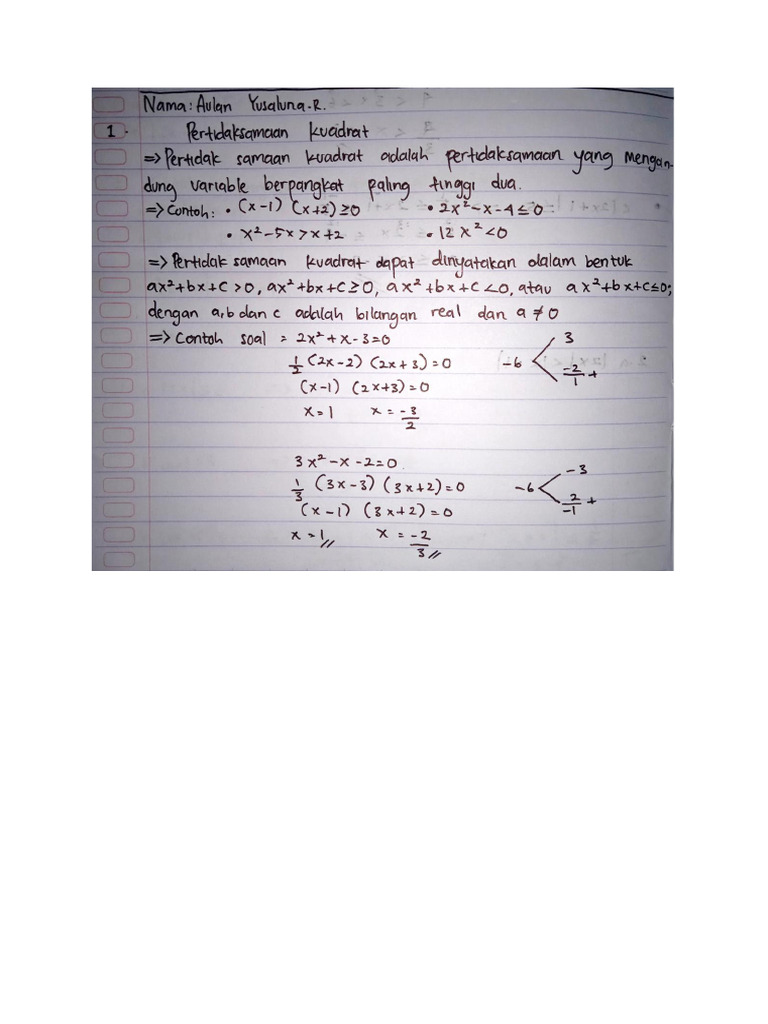 Nama: Aulan Yusaluna.R.
1. Pertidaksamaan kuadrat
=> Pertidak samaan kuadrat adalah pertidaksamaan yang mengan-
dung variable berpangkat paling tinggi dua.
=> Contoh: • (x-1) (x+2) ≥ 0 • 2x²-x-4 ≤ 0
• x²-5x > x+2 • 12x² < 0
=> Pertidak samaan kuadrat dapat dinyatakan dalam bentuk
ax²+bx+c > 0, ax²+bx+c ≥ 0, ax²+bx+c < 0, atau ax²+bx+c ≤ 0;
dengan a, b dan c adalah bilangan real dan a ≠ 0
=> Contoh soal = 2x²+x-3=0
1/2 (2x-2) (2x+3) = 0 -6 < 3
-2/1 +
(x-1) (2x+3) = 0
x=1 x = -3/2
3x²-x-2=0
1/3 (3x-3) (3x+2) = 0 -6 < -3
2/-1 +
(x-1) (3x+2) = 0
x=1// x = -2/3//